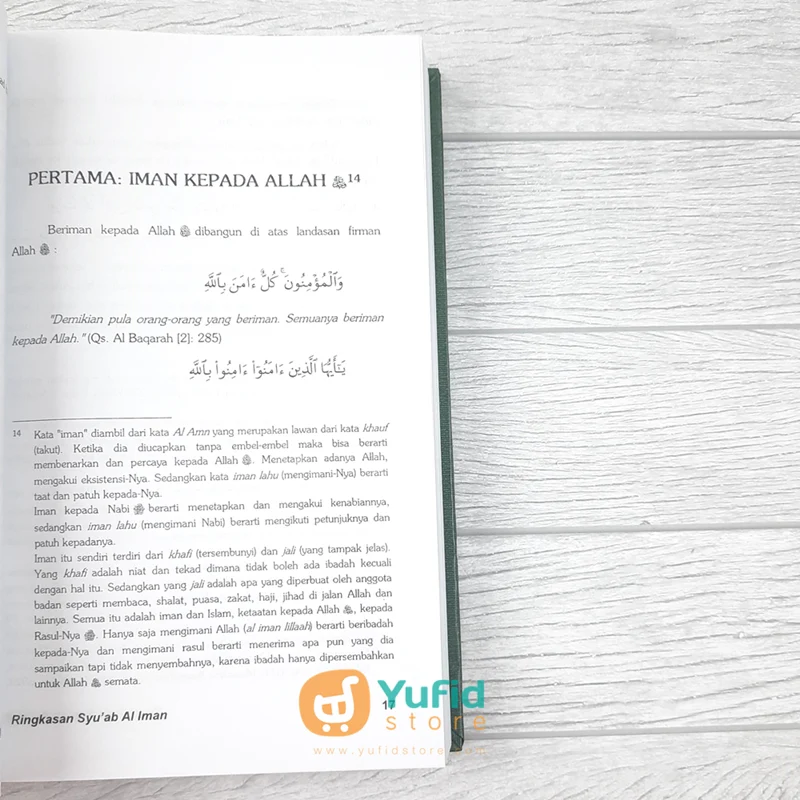 PERTAMA: IMAN KEPADA ALLAH ﷻ14
Beriman kepada Allah ﷻ dibangun di atas landasan firman
Allah ﷻ :
وَٱلْمُؤْمِنُونَ ۚ كُلٌّ ءَامَنَ بِٱللَّهِ
"Demikian pula orang-orang yang beriman. Semuanya beriman
kepada Allah." (Qs. Al Baqarah [2]: 285)
يَـٰٓأَيُّهَا ٱلَّذِينَ ءَامَنُوٓا۟ ءَامِنُوا۟ بِٱللَّهِ
14 Kata "iman" diambil dari kata Al Amn yang merupakan lawan dari kata khauf
(takut). Ketika dia diucapkan tanpa embel-embel maka bisa berarti
membenarkan dan percaya kepada Allah ﷻ. Menetapkan adanya Allah,
mengakui eksistensi-Nya. Sedangkan kata iman lahu (mengimani-Nya) berarti
taat dan patuh kepada-Nya.
Iman kepada Nabi ﷺ berarti menetapkan dan mengakui kenabiannya,
sedangkan iman lahu (mengimani Nabi) berarti mengikuti petunjuknya dan
patuh kepadanya.
Iman itu sendiri terdiri dari khafi (tersembunyi) dan jali (yang tampak jelas).
Yang khafi adalah niat dan tekad dimana tidak boleh ada ibadah kecuali
dengan hal itu. Sedangkan yang jali adalah apa yang diperbuat oleh anggota
badan seperti membaca, shalat, puasa, zakat, haji, jihad di jalan Allah dan
lainnya. Semua itu adalah iman dan Islam, ketaatan kepada Allah ﷻ, kepada
Rasul-Nya ﷺ. Hanya saja mengimani Allah (al iman lillaah) berarti beribadah
kepada-Nya dan mengimani rasul berarti menerima apa pun yang dia
sampaikan tapi tidak menyembahnya, karena ibadah hanya dipersembahkan
untuk Allah ﷻ semata.
Ringkasan Syu'ab Al Iman
Yufid
store
www.yufidstore.com